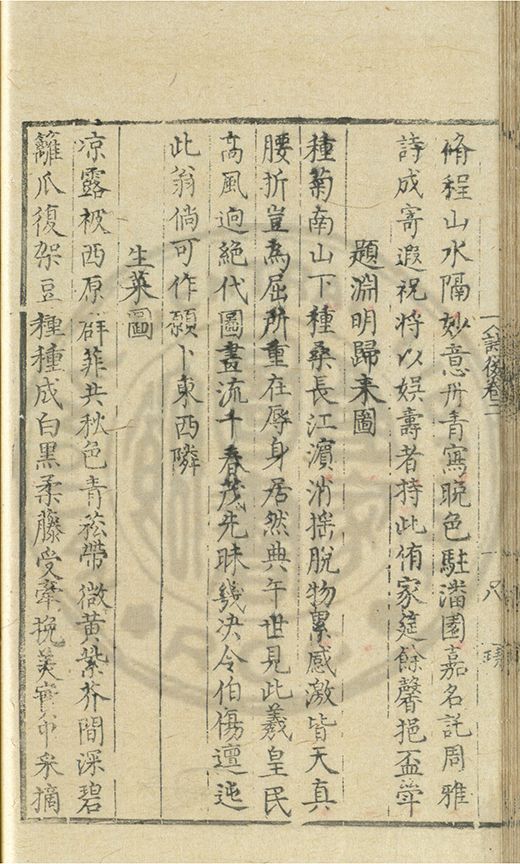 脩程山水隔妙意丹青寫晚色駐潘園嘉名託周雅
詩成寄遐祝將以娛壽者持此侑家筵餘馨挹盃斚
題淵明歸来圖
種菊南山下種桑長江濵消揺脫物累感激皆天真
腰折豈為屈所重在辱身居然典午世見此羲皇民
高風逈絶代圖畫流千春茂先昧幾决令伯傷邅迍
此翁倘可作願卜東西隣
生菜圖
凉露被西原群菲共秋色青菘帶微黄紫芥間深碧
籬瓜復架豆種種成白黒柔藤受牽挽美實命采摘